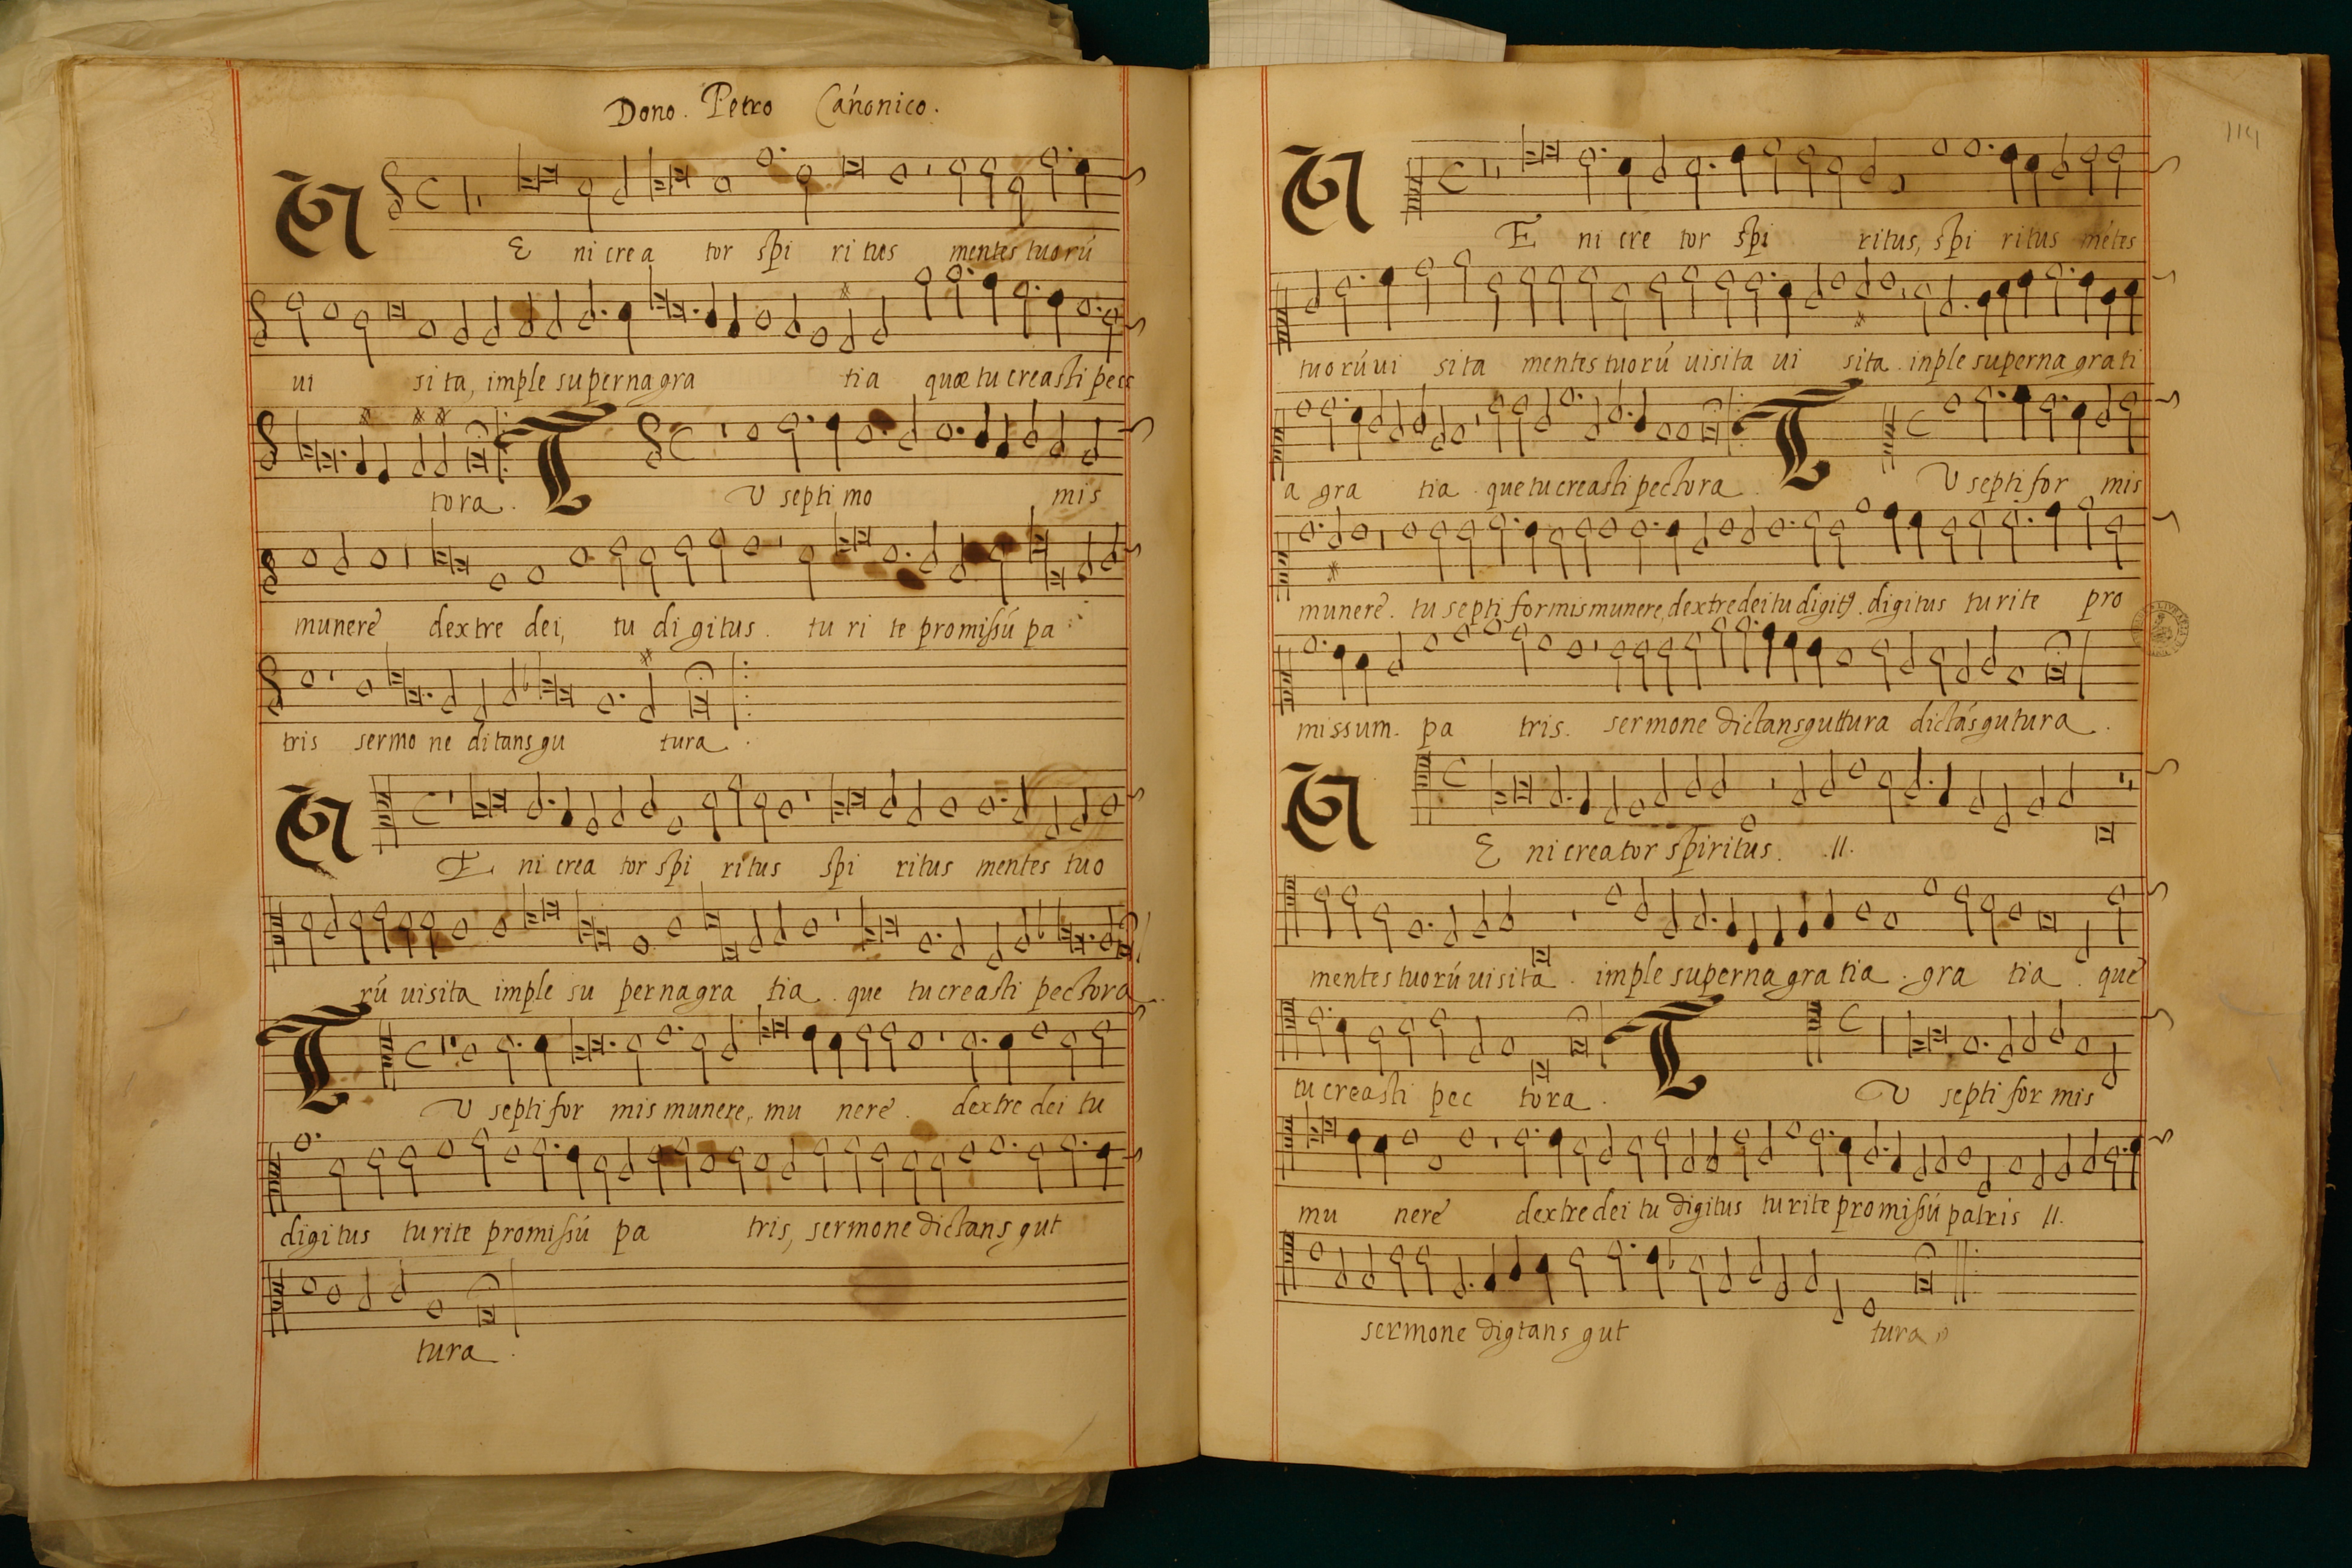 Dono. Petro Cánonico.
V E ni crea tor spi ri tus mentes tuorú
ui si ta, imple superna gra tia quæ tu creasti pec
tora. T V septi mo mis
munere dextre dei, tu digitus. tu ri te promissú pa
tris sermo ne ditans gu tura.
V E ni crea tor spi ritus spi ritus mentes tuo
rú uisita imple su perna gra tia. que tu creasti pectora.
T V septi for mis munere, mu nere. dextre dei tu
digitus tu rite promissú pa tris, sermone dictans gut
tura.
114
V E ni cre tor spi ritus, spi ritus métes
tuorú ui sita mentes tuorú uisita ui sita. inple superna grati
a gra tia. que tu creasti pectora. T V septi for mis
munere. tu septi formis munere, dextre dei tu digit9. digitus tu rite pro
missum. pa tris. sermone dictans guttura dictás gutura.
V E ni creator spiritus. .II.
mentes tuorú uisita. imple superna gra tia. gra tia. que
tu creasti pec tora. T V septi for mis
mu nere dextre dei tu digitus tu rite promissú patris II.
sermone digtans gut tura